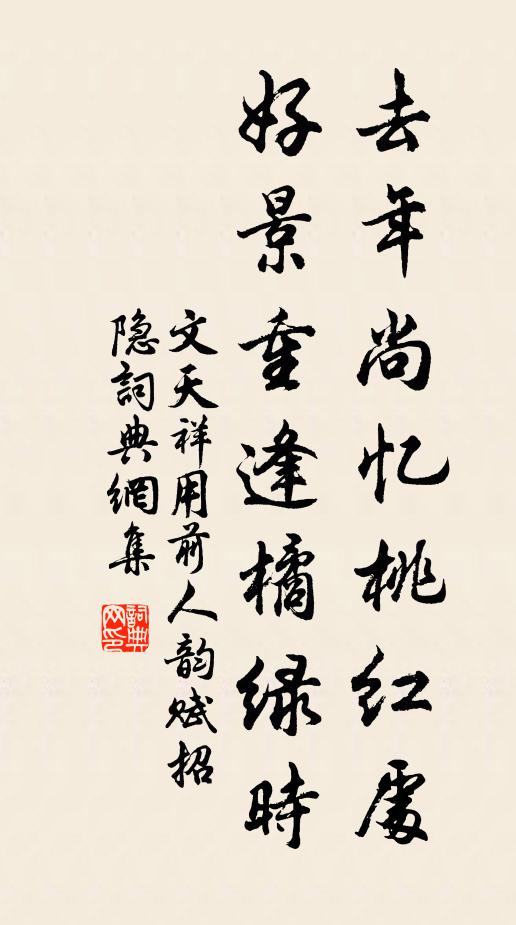 去年尚忆桃红处
好景重逢橘绿時
文天祥用前人韵赋招
隐詞典網集
詞典網印